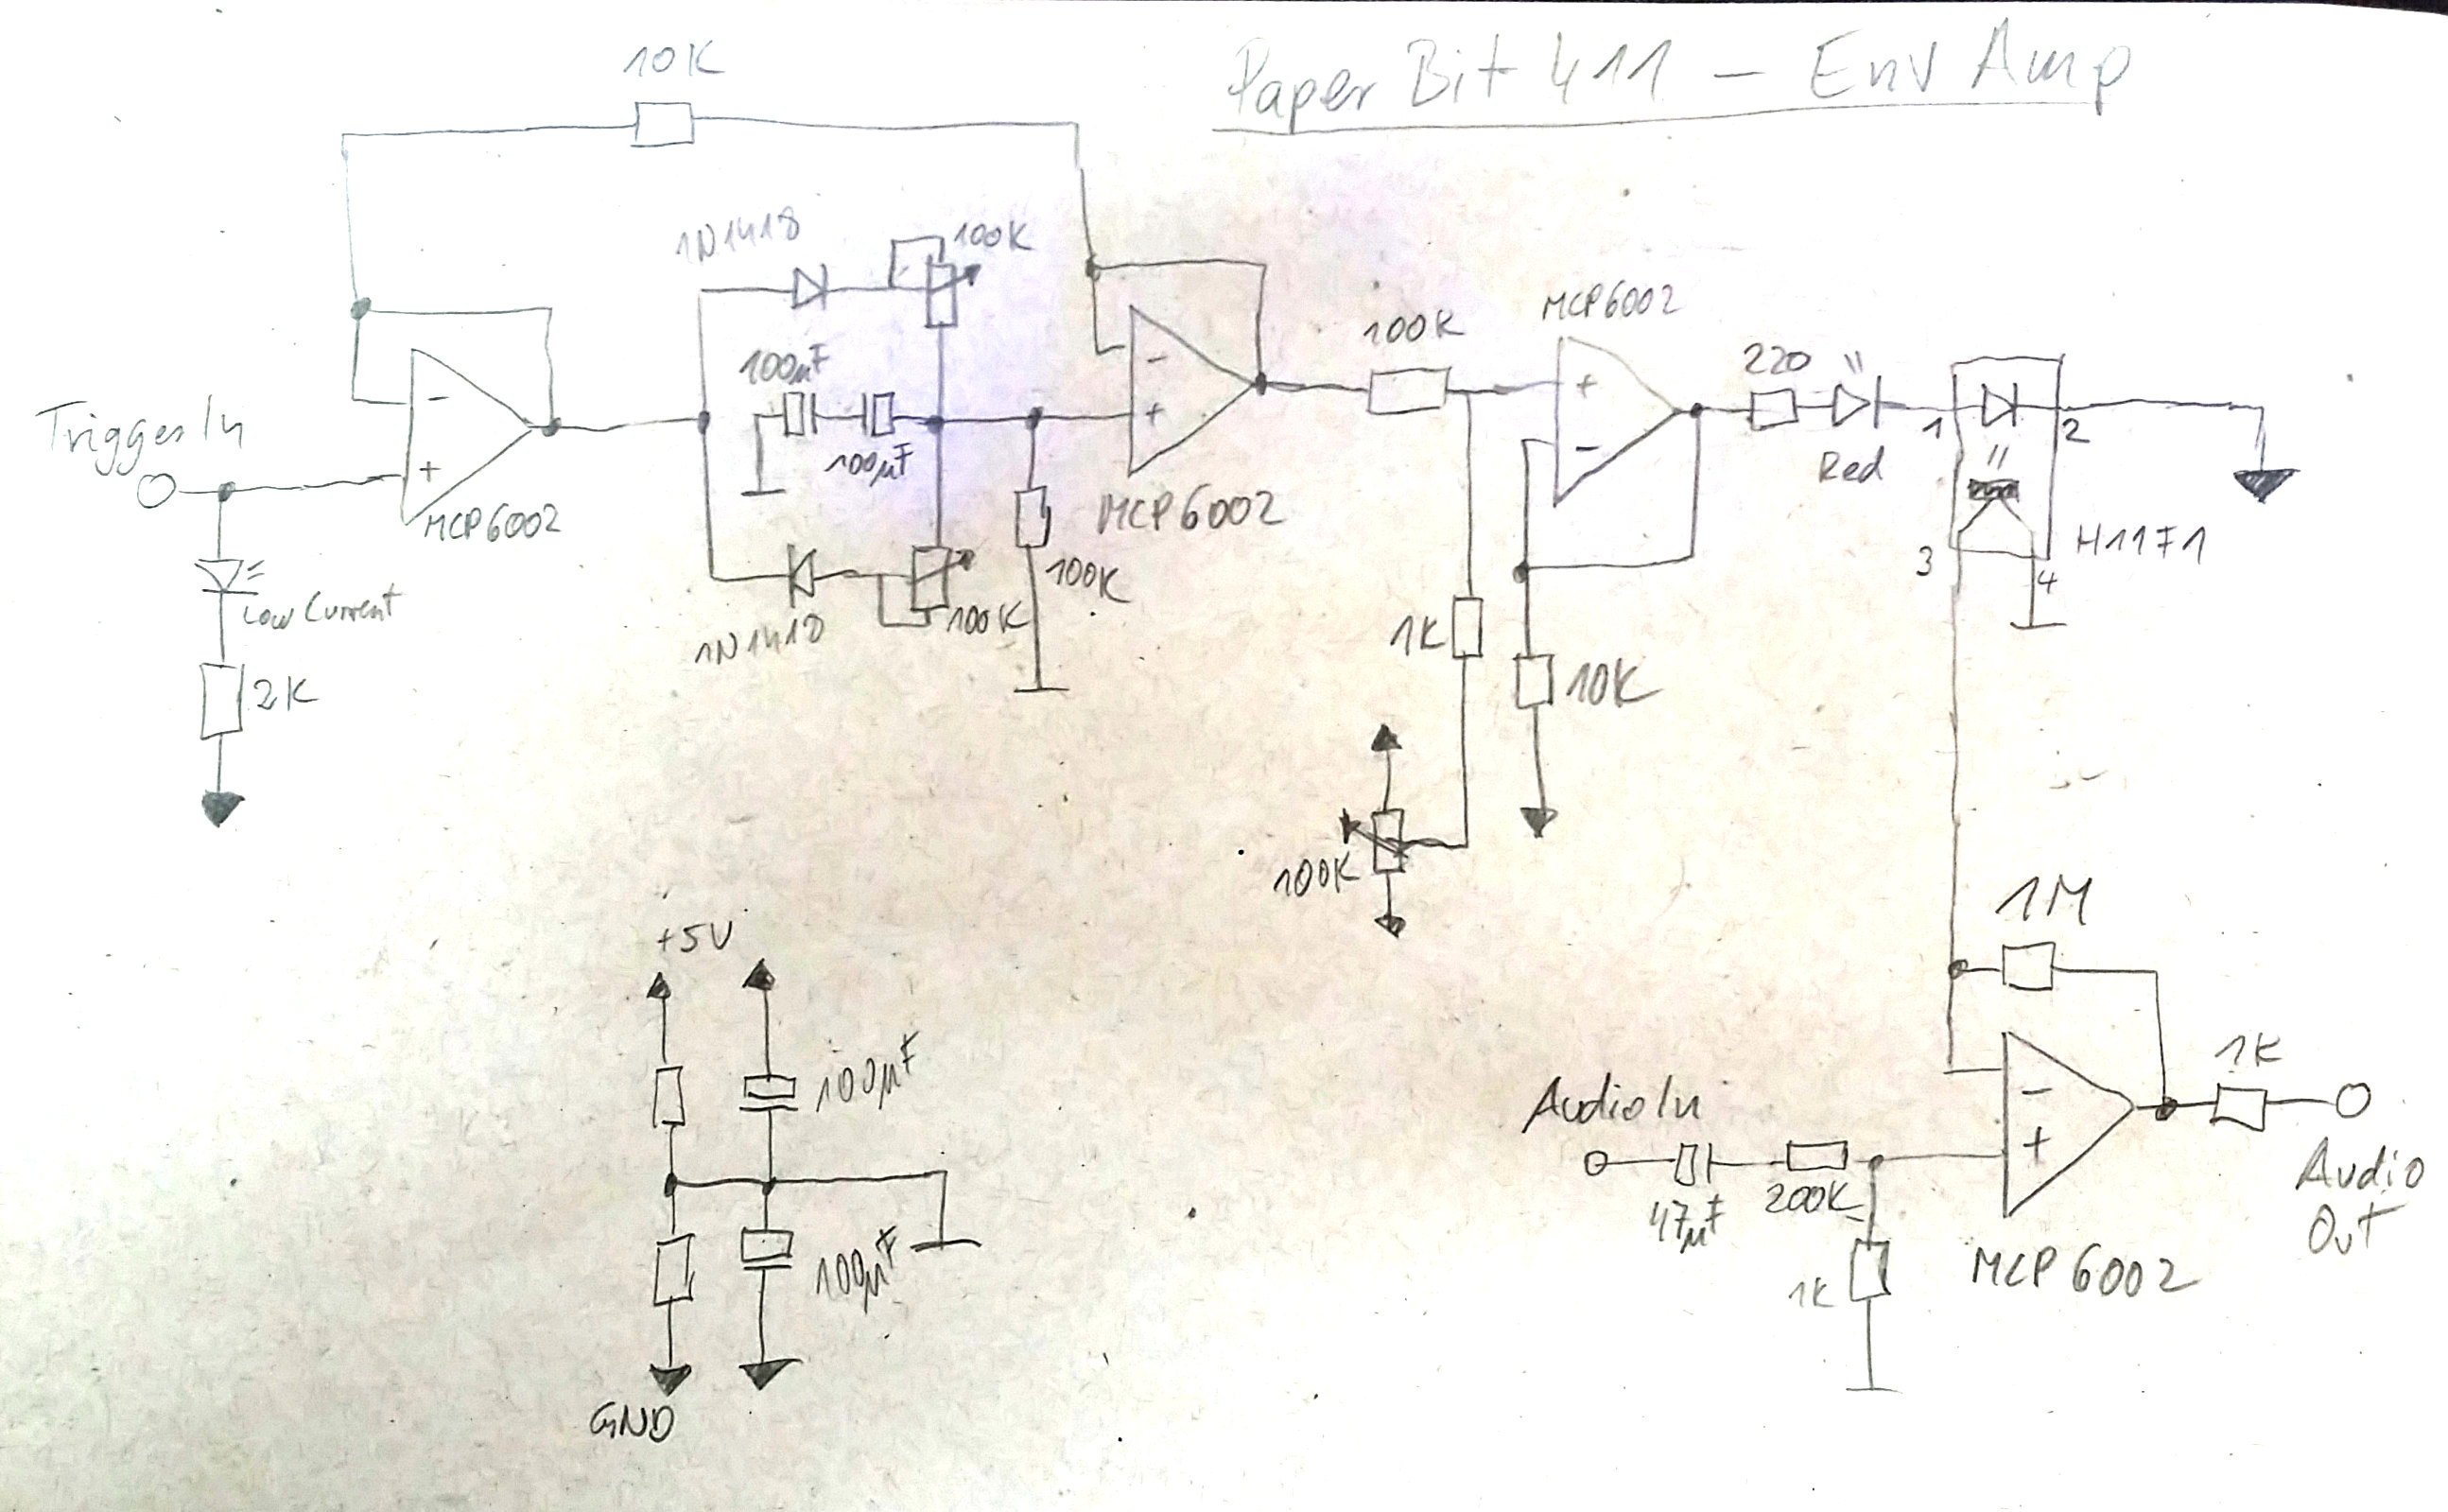 Paper Bit 411 – Env Amp
10K
1N1418
100K
100µF
100µF
Trigger In
-
+
MCP6002
Low Current
2K
1N1418
100K
-
+
MCP6002
100K
100K
MCP6002
+
-
220
Red
1
2
3
4
H11F1
1K
10K
100K
+5V
100µF
100µF
GND
1M
Audio In
47µF
200K
1K
-
+
MCP6002
1K
Audio
Out